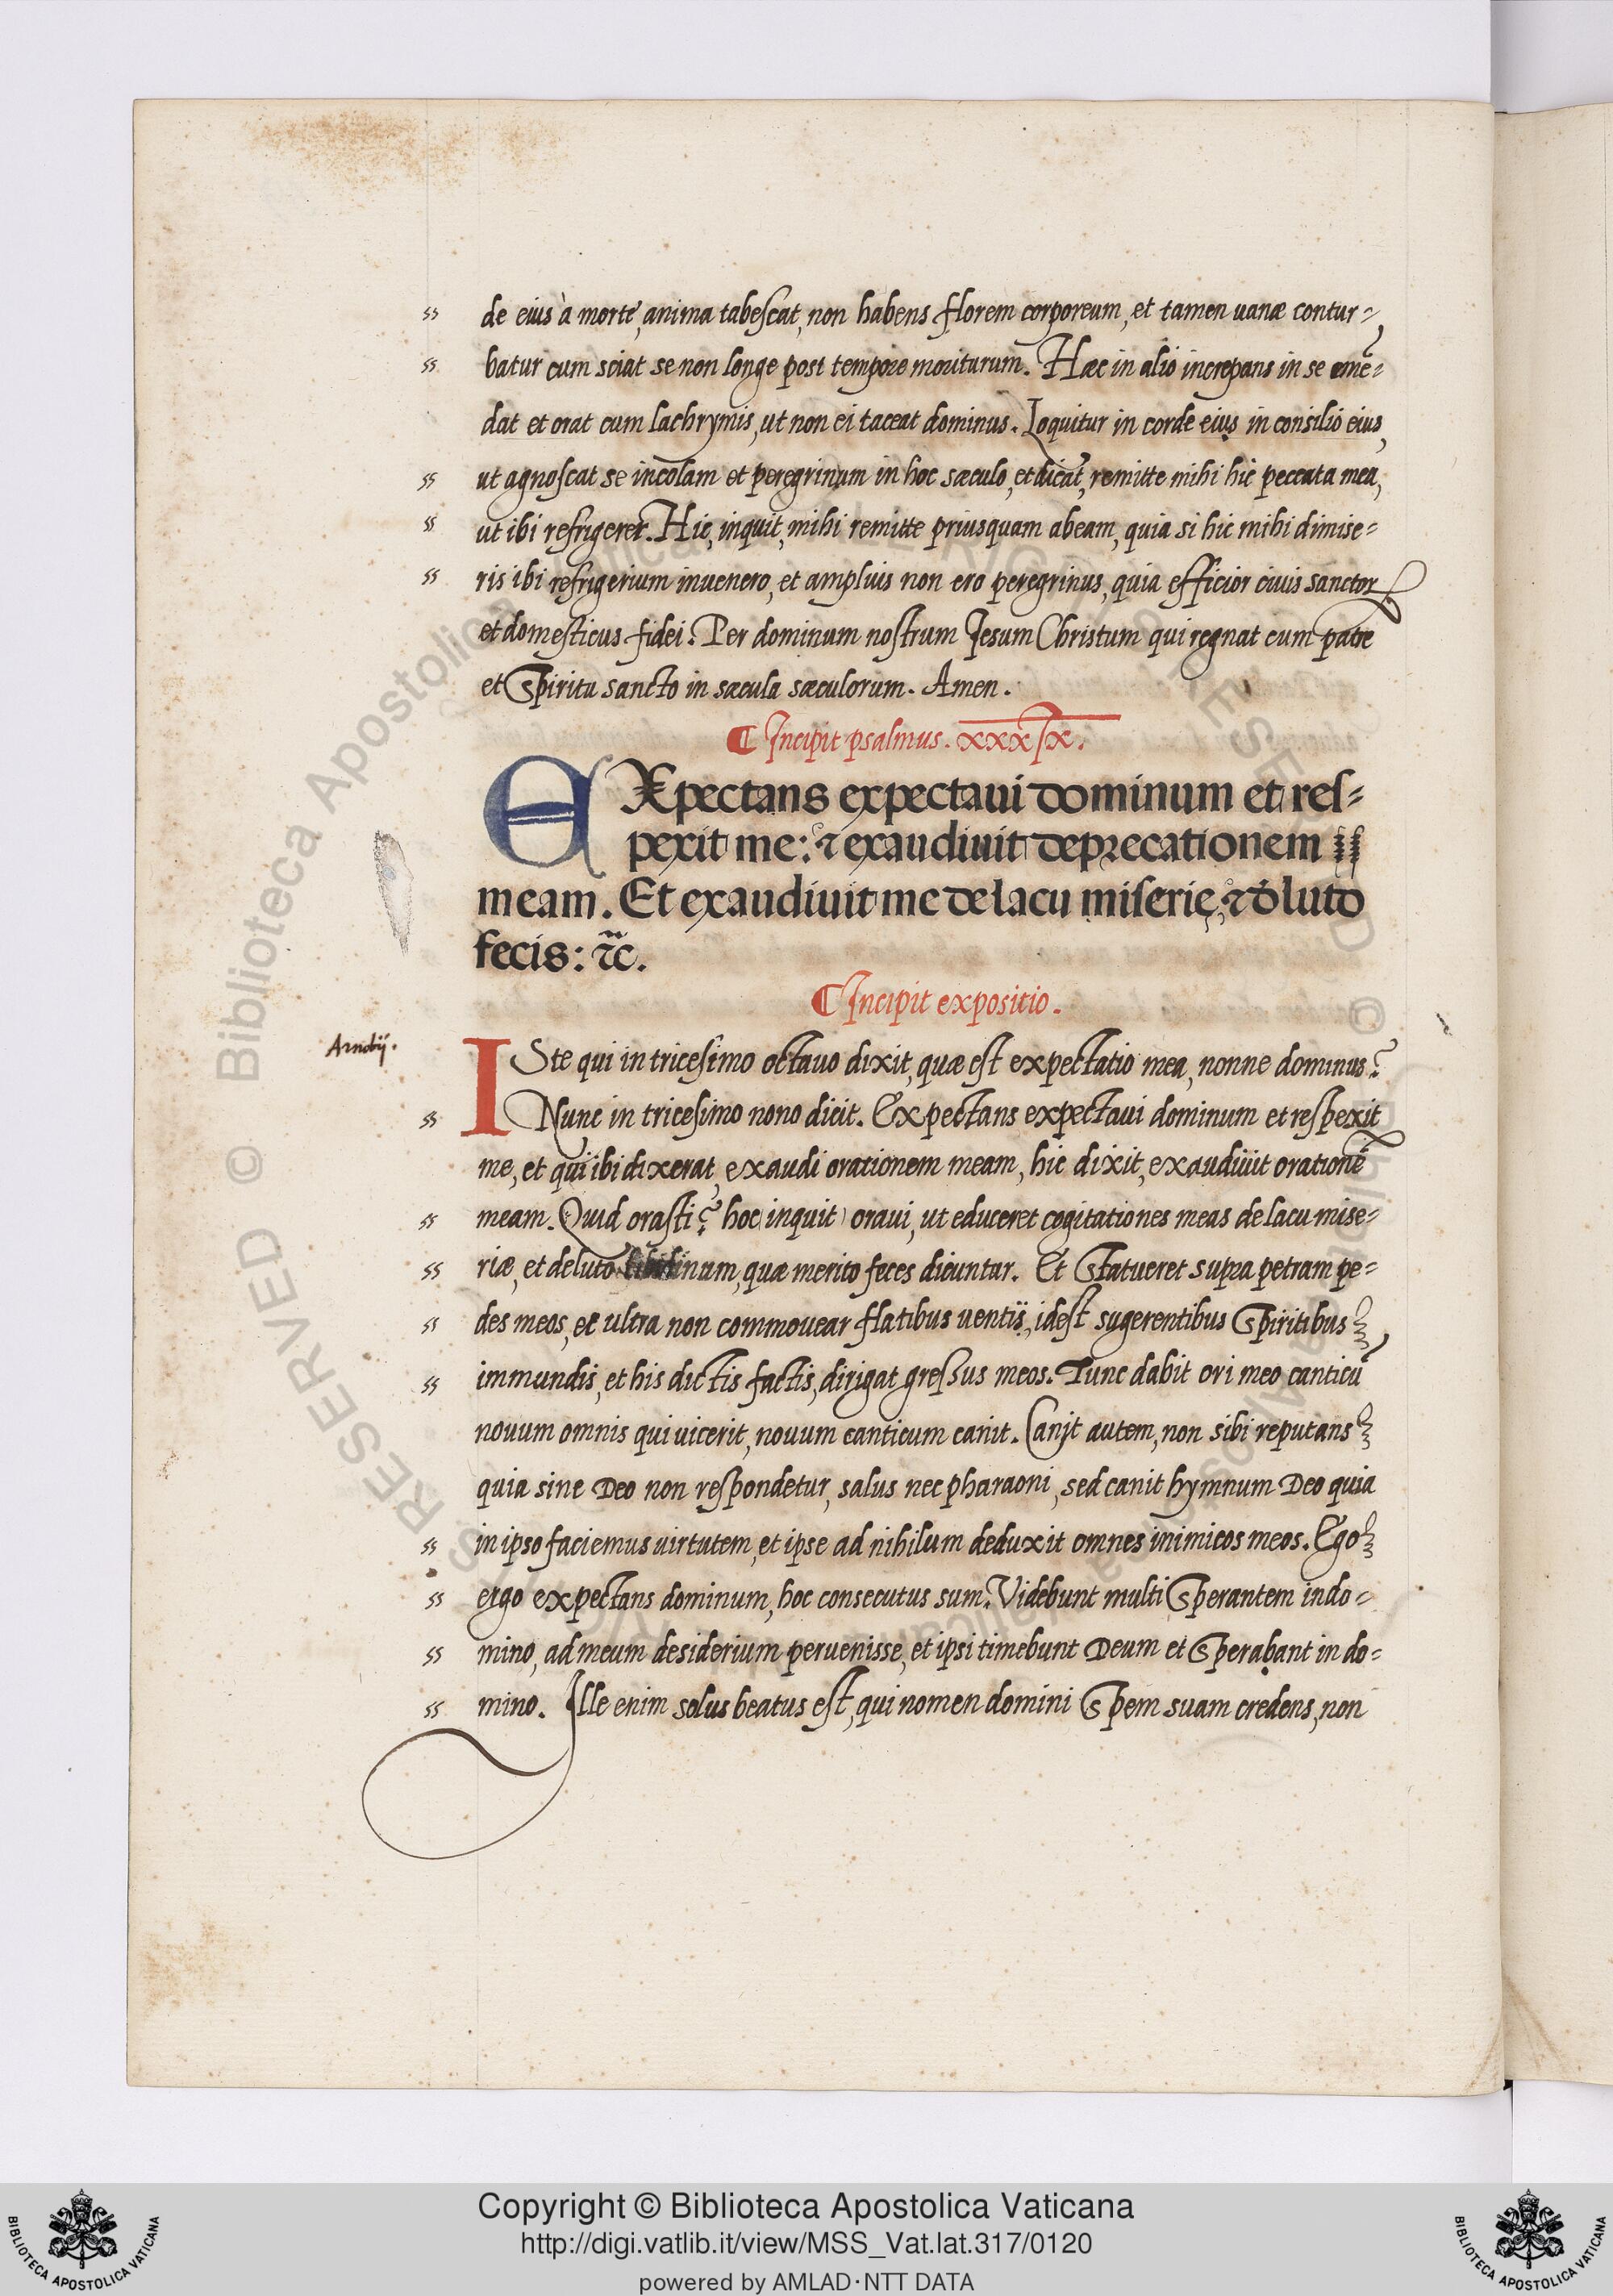 de eius à morte, anima tabescat, non habens florem corporeum, et tamen uanæ contur-
batur cum sciat se non longe post tempore moriturum. Hæc in alio increpans in se emē-
dat et orat cum lachrymis, ut non ei taceat dominus. Loquitur in corde eius in consilio eius,
ut agnoscat se incolam et peregrinum in hoc sæculo, et dicat, remitte mihi hic peccata mea,
ut ibi refrigerer. Hic, inquit, mihi remitte priusquam abeam, quia si hic mihi dimise-
ris ibi refrigerium inuenero, et amplius non ero peregrinus, quia efficior ciuis sanctoꝝ
et domesticus fidei. Per dominum nostrum Jesum Christum qui regnat cum patre
et Spiritu sancto in sæcula sæculorum. Amen.
¶ Incipit psalmus. xxxix.
EXpectans expectaui dominum et res-
pexit me: ⁊ exaudiuit deprecationem
meam. Et exaudiuit me de lacu miserię, ⁊ d̄ luto
fecis: ⁊c̃.
¶ Incipit expositio.
Arnobij.
ISte qui in tricesimo octauo dixit, quæ est expectatio mea, nonne dominus?
Nunc in tricesimo nono dicit. Expectans expectaui dominum et respexit
me, et qui ibi dixerat, exaudi orationem meam, hic dixit, exaudiuit orationē
meam. Quid orasti? hoc inquit oraui, ut educeret cogitationes meas de lacu mise-
riæ, et de luto libidinum, quæ merito feces dicuntur. Et Statueret supra petram pe-
des meos, et ultra non commouear flatibus uentij, idest sugerentibus Spiritibus
immundis, et his dictis factis, dirigat gressus meos. Tunc dabit ori meo canticū
nouum omnis qui uicerit, nouum canticum canit. Canit autem, non sibi reputans
quia sine Deo non respondetur, salus nec pharaoni, sed canit hymnum Deo quia
in ipso faciemus uirtutem, et ipse ad nihilum deduxit omnes inimicos meos. Ego
ergo expectans dominum, hoc consecutus sum. Videbunt multi Sperantem in do-
mino, ad meum desiderium peruenisse, et ipsi timebunt Deum et Sperabant in do-
mino. Ille enim solus beatus est, qui nomen domini Spem suam credens, non
Copyright © Biblioteca Apostolica Vaticana
http://digi.vatlib.it/view/MSS_Vat.lat.317/0120
powered by AMLAD·NTT DATA
BIBLIOTECA APOSTOLICA VATICANA
BIBLIOTECA APOSTOLICA VATICANA